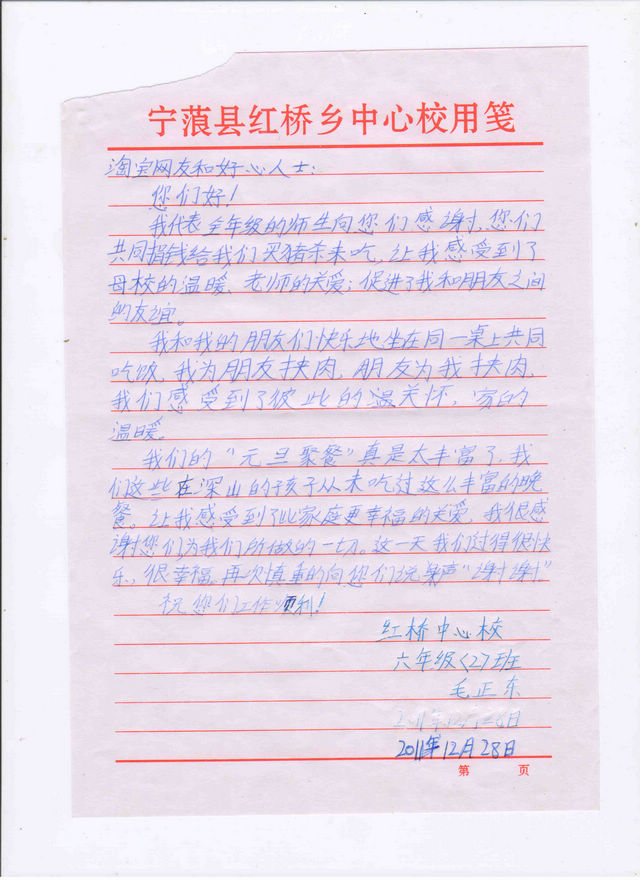 宁蒗县红桥乡中心校用笺
淘宝网友和好心人士:
您们好!
我代表全年级的师生向您们感谢,您们
共同捐钱给我们买猪杀来吃,让我感受到了
母校的温暖、老师的关爱;促进了我和朋友之间
的友谊。
我和我的朋友们快乐地坐在同一桌上共同
吃饭,我为朋友挟肉,朋友为我挟肉,
我们感受到了彼此的温关怀,家的
温暖。
我们的“元旦聚餐”真是太丰富了,我
们这些在深山的孩子从未吃过这么丰富的晚
餐。让我感受到了比家庭更幸福的关爱,我很感
谢您们为我们所做的一切。这一天我们过得很快
乐、很幸福,再次慎重的向您们说声“谢谢”
祝您们工作顺利!
红桥中心校
六年级<2>班
毛正东
2011年12月28日
2011年12月28日
第 页